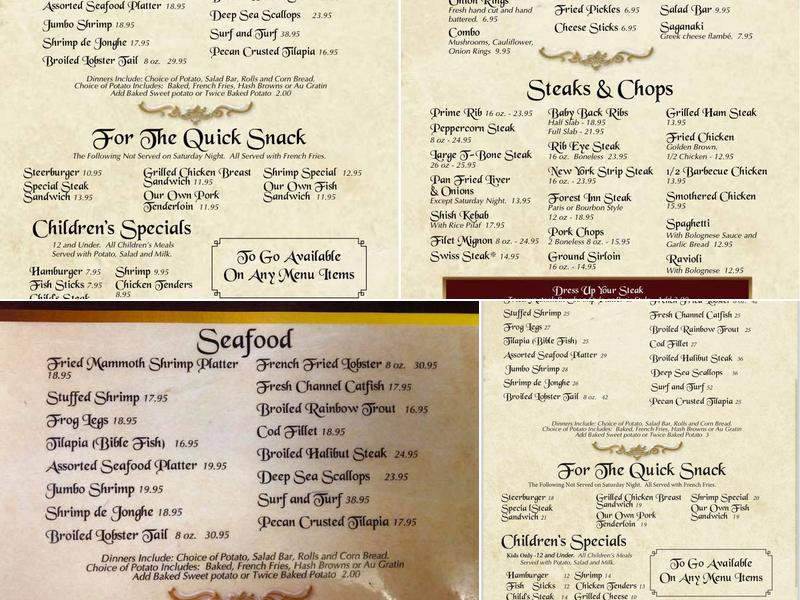 Assorted Seafood Platter 18.95
Jumbo Shrimp 18.95
Shrimp de Jonghe 17.95
Broiled Lobster Tail 8 oz. 29.95
Deep Sea Scallops 23.95
Surf and Turf 38.95
Pecan Crusted Tilapia 16.95
Dinners Include: Choice of Potato, Salad Bar, Rolls and Corn Bread.
Choice of Potato Includes: Baked, French Fries, Hash Browns or Au Gratin
Add Baked Sweet potato or Twice Baked Potato 2.00
For The Quick Snack
The Following Not Served on Saturday Night. All Served with French Fries.
Steerburger 10.95
Special Steak
Sandwich 13.95
Grilled Chicken Breast
Sandwich 11.95
Our Own Pork
Tenderloin 11.95
Shrimp Special 12.95
Our Own Fish
Sandwich 11.95
Children's Specials
12 and Under. All Children's Meals
Served with Potato, Salad and Milk.
Hamburger 7.95
Fish Sticks 7.95
Child's Steak
Shrimp 9.95
Chicken Tenders
8.95
To Go Available
On Any Menu Items
Onion Rings
Fresh hand cut and hand
battered. 6.95
Combo
Mushrooms, Cauliflower,
Onion Rings 9.95
Fried Pickles 6.95
Cheese Sticks 6.95
Salad Bar 9.95
Saganaki
Greek cheese flambé. 7.95
Steaks & Chops
Prime Rib 16 oz. - 23.95
Peppercorn Steak
8 oz - 24.95
Large T-Bone Steak
26 oz - 25.95
Pan Fried Liver
& Onions
Except Saturday Night. 13.95
Shish Kebab
With Rice Pilaf 17.95
Filet Mignon 8 oz. - 24.95
Swiss Steak* 14.95
Baby Back Ribs
Half Slab - 18.95
Full Slab - 21.95
Rib Eye Steak
16 oz. Boneless 23.95
New York Strip Steak
16 oz - 23.95
Forest Inn Steak
Paris or Bourbon Style
12 oz - 18.95
Pork Chops
2 Boneless 8 oz. - 15.95
Ground Sirloin
16 oz - 14.95
Grilled Ham Steak
13.95
Fried Chicken
Golden Brown.
1/2 Chicken - 12.95
1/2 Barbecue Chicken
13.95
Smothered Chicken
15.95
Spaghetti
With Bolognese Sauce and
Garlic Bread 12.95
Ravioli
With Bolognese 12.95
Dress Up Your Steak
Seafood
Fried Mammoth Shrimp Platter
18.95
Stuffed Shrimp 17.95
Frog Legs 18.95
Tilapia (Bible Fish) 16.95
Assorted Seafood Platter 19.95
Jumbo Shrimp 19.95
Shrimp de Jonghe 18.95
Broiled Lobster Tail 8 oz. 30.95
French Fried Lobster 8 oz. 30.95
Fresh Channel Catfish 17.95
Broiled Rainbow Trout 16.95
Cod Fillet 18.95
Broiled Halibut Steak 24.95
Deep Sea Scallops 23.95
Surf and Turf 38.95
Pecan Crusted Tilapia 17.95
Dinners Include: Choice of Potato, Salad Bar, Rolls and Corn Bread.
Choice of Potato Includes: Baked, French Fries, Hash Browns or Au Gratin
Add Baked Sweet potato or Twice Baked Potato 2.00
Fried Mammoth Shrimp Platter
Stuffed Shrimp 25
Frog Legs 27
Tilapia (Bible Fish) 25
Assorted Seafood Platter 29
Jumbo Shrimp 28
Shrimp de Jonghe 26
Broiled Lobster Tail 8 oz. 42
French Fried Lobster 8 oz. 42
Fresh Channel Catfish 25
Broiled Rainbow Trout 25
Cod Fillet 27
Broiled Halibut Steak 36
Deep Sea Scallops 36
Surf and Turf 52
Pecan Crusted Tilapia 25
Dinners Include: Choice of Potato, Salad Bar, Rolls and Corn Bread.
Choice of Potato Includes: Baked, French Fries, Hash Browns or Au Gratin
Add Baked Sweet potato or Twice Baked Potato 3
For The Quick Snack
The Following Not Served on Saturday Night. All Served with French Fries.
Steerburger 18
Special Steak
Sandwich 21
Grilled Chicken Breast
Sandwich 19
Our Own Pork
Tenderloin 19
Shrimp Special 20
Our Own Fish
Sandwich 19
Children's Specials
Kids Only -12 and Under. All Children's Meals
Served with Potato, Salad and Milk.
Hamburger 12
Fish Sticks 12
Child's Steak 14
Shrimp 14
Chicken Tenders 13
Grilled Cheese 10
To Go Available
On Any Menu Items